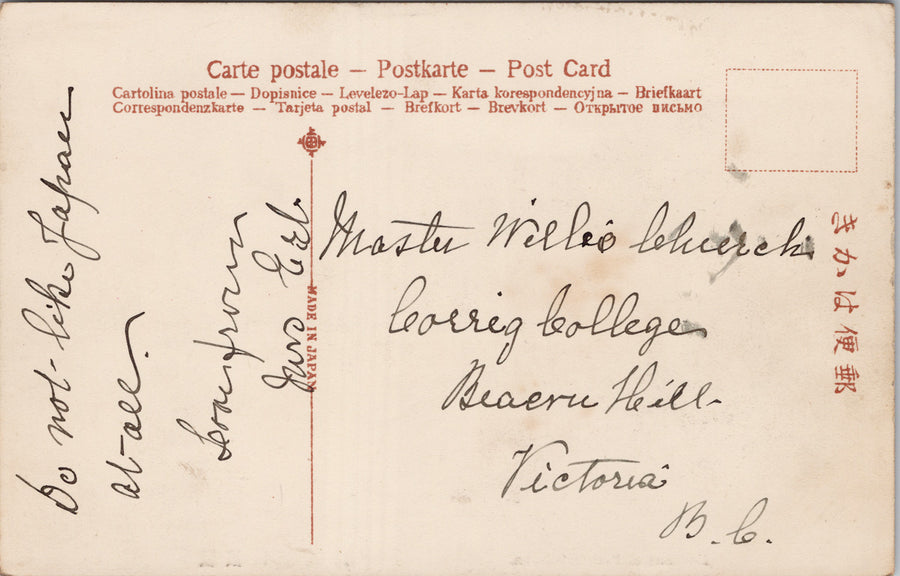 Carte postale — Postkarte — Post Card
Cartolina postale — Dopisnice — Levelezo-Lap — Karta korespondencyjna — Briefkaart
Correspondenzkarte — Tarjeta postal — Brefkort — Brevkort — Открытое письмо
郵便はかき
MADE IN JAPAN
Do not like Japan
at all.
Love from
Master Willie Church
Corrig College
Beacon Hill
Victoria
B. C.